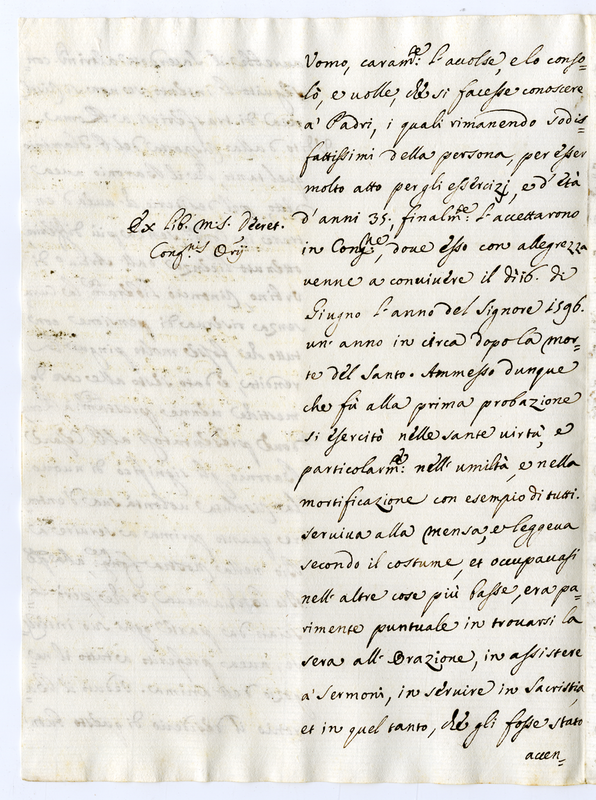 Uomo, caram.te l'accolse, e lo conso=
lò, e volle, che si facesse conoscere
a' Padri, i quali rimanendo sodis=
fattissimi della persona, per esser
molto atto per gli essercizj, e d'età
d'anni 35, finalm.te l'accettarono
in Cong.ne, dove esso con allegrezza
venne a convivere il dì 16. di
Giugno l'anno del Signore 1596.
un'anno in circa dopo la mor=
te del Santo. Ammesso dunque
che fù alla prima probazione
si esercitò nelle sante virtù, e
particolarm.te nell'umiltà, e nella
mortificazione con esempio di tutti.
serviva alla mensa, e leggeva
secondo il costume, et occupavasi
nell'altre cose più basse, era pa=
rimente puntuale in trovarsi la
sera all'Orazione, in assistere
a' Sermoni, in servire in Sacristia,
et in quel tanto, che gli fosse stato
accen=
Ex Lib. m.s. Decret.
Cong.nis Orij